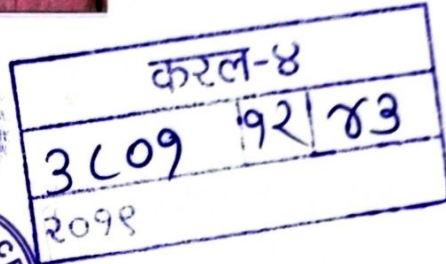 करल-४
३८०१ १२ ४३
२०१९